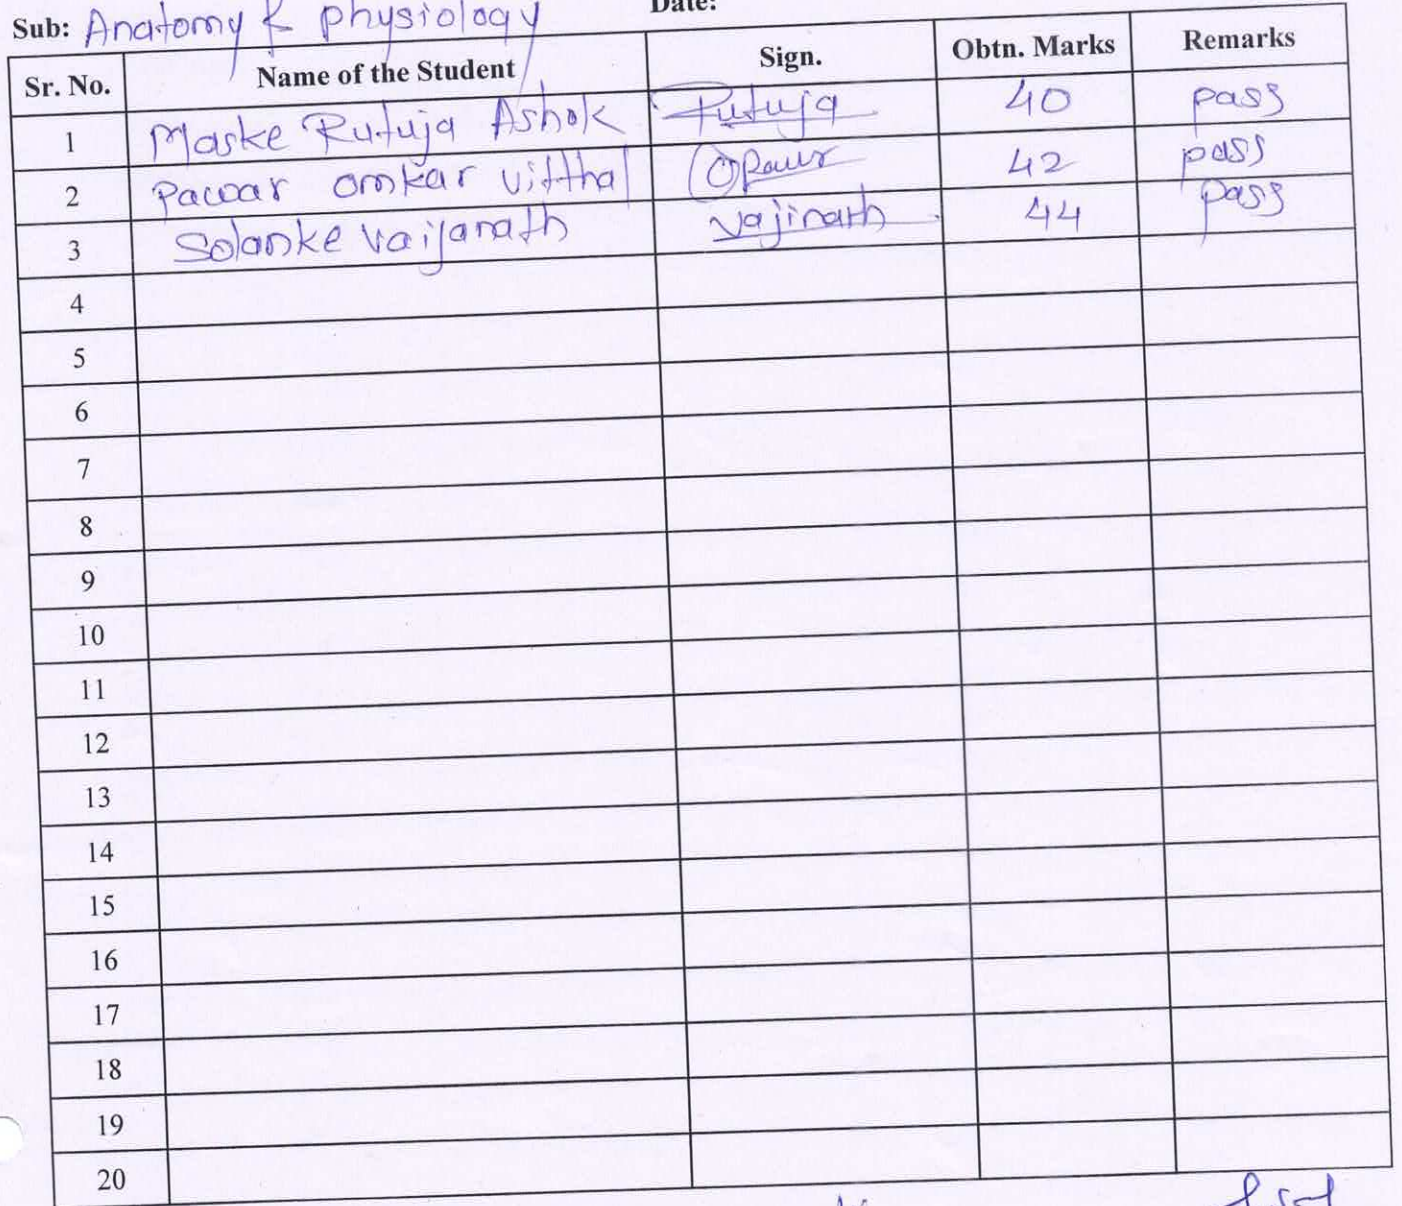 Sub: Anatomy & physiology Date:
Sr. No. Name of the Student Sign. Obtn. Marks Remarks
1 Maske Rutuja Ashok Rutuja 40 pass
2 Pawar omkar vitthal OPawr 42 pass
3 Solanke vaijanath vajinath 44 pass
4
5
6
7
8
9
10
11
12
13
14
15
16
17
18
19
20